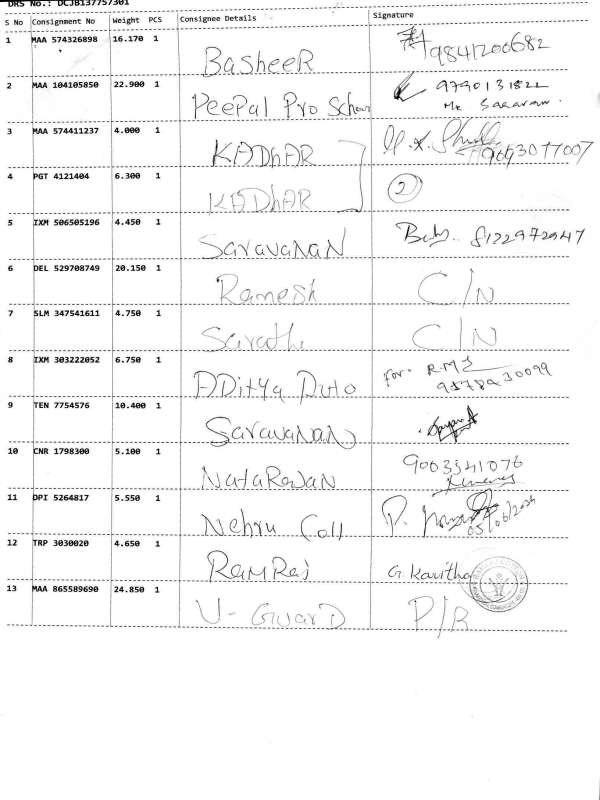 DRS No.: DCJB137757301
S No Consignment No Weight PCS Consignee Details Signature
1 MAA 574326898 16.170 1 BasheeR 9841200682
2 MAA 104105850 22.900 1 PeePal Pro School 9790131822
Mr Saravan.
3 MAA 574411237 4.000 1 KADhAR
4 PGT 4121404 6.300 1 KADhAR 2
5 IXM 506505196 4.450 1 SaravaNaN 8122972947
6 DEL 529708749 20.150 1 Ramesh C/N
7 SLM 347541611 4.750 1 Sarathi C/N
8 IXM 303222052 6.750 1 ADitYa Auto for. R.M.S
9 TEN 7754576 10.400 1 SaravaNaN
10 CNR 1798300 5.100 1 NataRaJaN 9003541076
11 DPI 5264817 5.550 1 Nehru Coll P.
05/06/2024
12 TRP 3030020 4.650 1 RamRaj G. Kavitha
13 MAA 865589690 24.850 1 V-GuarD P/R